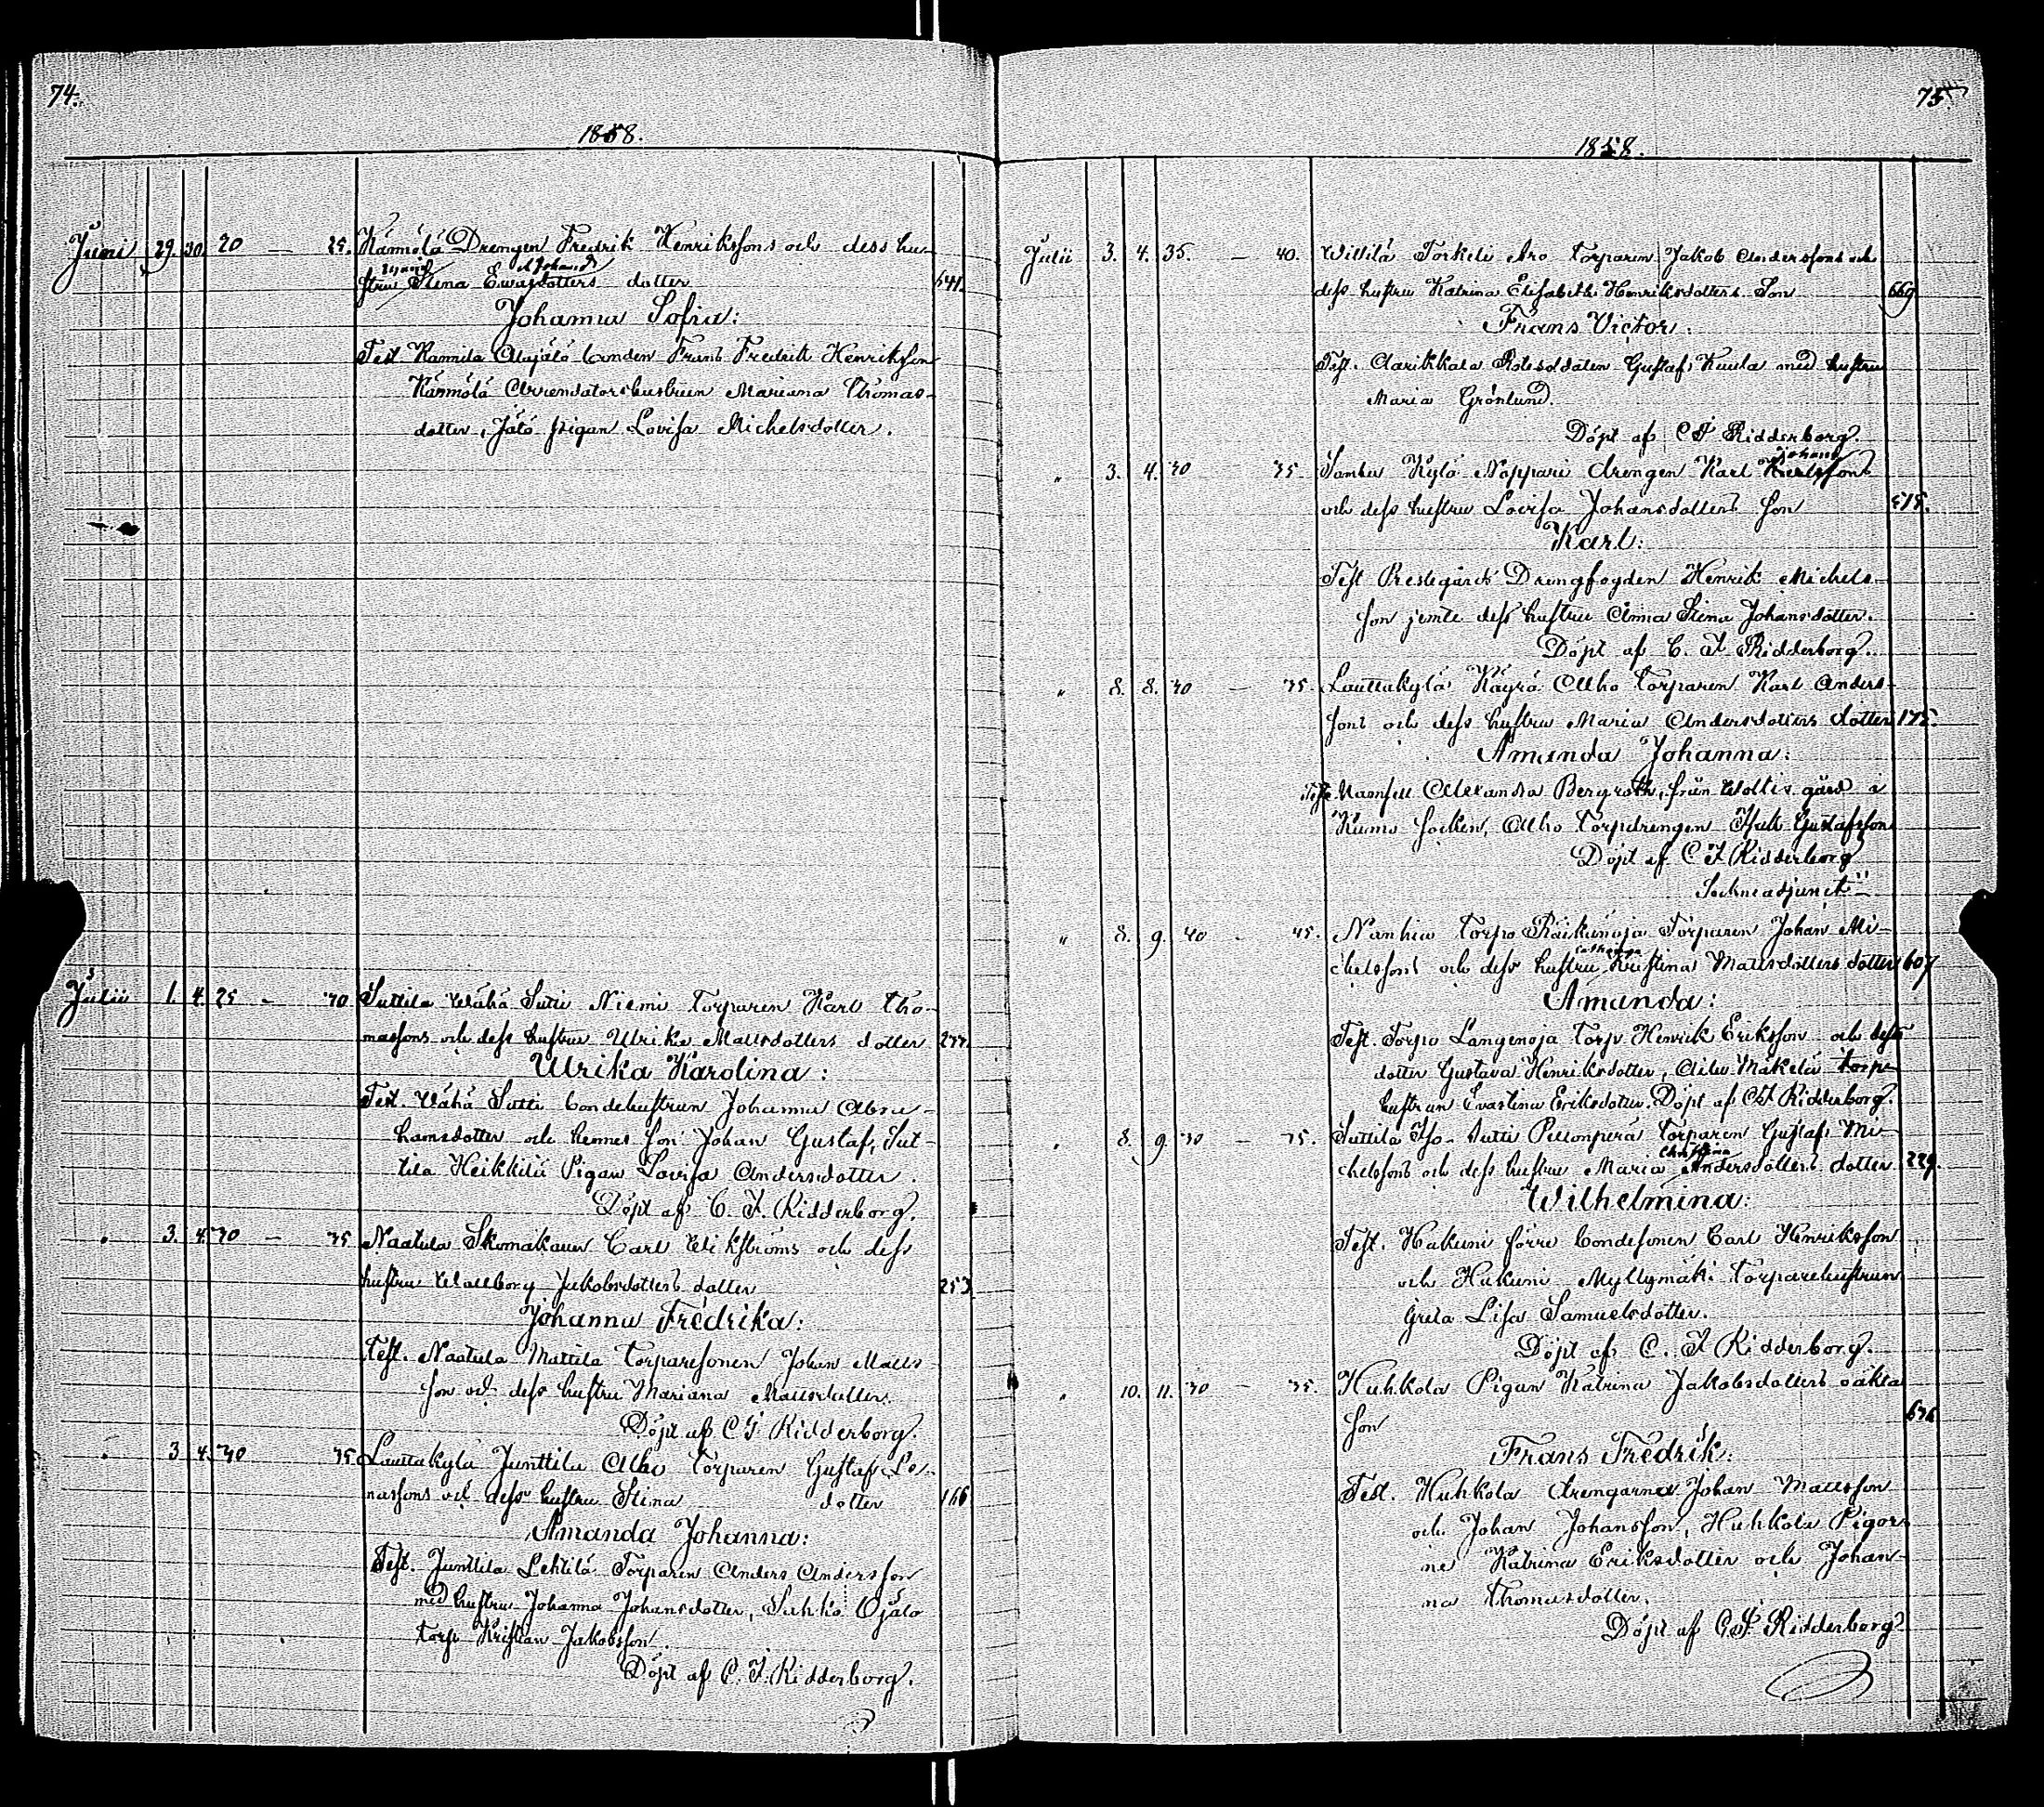 74.
1858.
Juni 29. 30. 20 — 25. Kämölä Drengen Fredrik Henrikssons och dess hu-
stru Stina Ewasdotters dotter 641.
Johanna Sofia:
Test Kannila Alajälö bonden Frans Fredrik Henriksson
Kämölä Arrendatorshustrun Mariana Thomas-
dotter, Jälö pigan Lovisa Michelsdotter.
Julii 1. 4. 25 — 30 Suttila Wähä Sutti Niemi Torparen Karl Tho-
massons och dess hustru Ulrika Mattsdotters dotter 277.
Ulrika Karolina:
Test. Wähä Sutti bondehustrun Johanna Abra-
hamsdotter och hennes son Johan Gustaf, Sut-
tila Heikkilä Pigan Lovisa Andersdotter.
Döpt af C. F. Ridderborg.
" 3. 4. 30 — 35 Naatula Skomakaren Carl Wikströms och dess
hustru Wallborg Jakobsdotters dotter 253
Johanna Fredrika:
Test. Naatula Mattila Torparesonen Johan Matts-
son och dess hustru Mariana Mattsdotter.
Döpt af C F Ridderborg.
" 3 4. 30 35 Lauttakylä Junttila Alho Torparen Gustaf Jo-
nassons och dess hustru Stina dotter 166
Amanda Johanna:
Test. Junttila Lehtilä Torparen Anders Andersson
med hustru Johanna Johansdotter, Suhko Ojalo
torp Kristian Jakobsson.
Döpt af C. F. Ridderborg.
75
1858.
Julii 3. 4. 35. — 40. Willilä Torkeli Aro Torparen Jakob Anderssons och
dess hustru Katrina Elisabeth Henriksdotters Son 669
Frans Victor:
Test. Aarikkala Rotesoldaten Gustaf Kuula med hustru
Maria Grönlund.
Döpt af C F Ridderborg.
" 3. 4. 30 35. Sambu Kylä Nappari drengen Karl Johans Karlssons
och dess hustru Lovisa Johansdotters son 515.
Karl:
Test Prestegårds Drengfogden Henrik Michels-
son jemte dess hustru Anna Stina Johansdotter.
Döpt af C. F Ridderborg.
" 8. 8. 30 — 35. Lauttakylä Käyrä Alho Torparen Karl Anders-
sons och dess hustru Maria Andersdotters dotter 175.
Amanda Johanna:
Test. Mamsell Alexandra Bergroth, från Woltis gård i
Kumo Socken, Alho Torpdrengen Isak Gustafsson
Döpt af C F Ridderborg
Sockneadjunct
" 8. 9. 40 — 45. Nanhia Torpo Räikunoja Torparen Johan Mi-
chelssons och dess hustru Catharina Kristina Mattsdotters dotter 607
Amanda:
Test. Torpo Längenoja Torp. Henrik Eriksson och dess
dotter Gustava Henriksdotter, Mäkelä torpe
hustrun Evastina Eriksdotter. Döpt af C F Ridderborg.
" 8. 9. 30 — 35. Suttila Iso-Sutti Pellonperä Torparen Gustaf Mi-
chelssons och dess hustru Maria Christina Andersdotters dotter 229.
Wilhelmina:
Test. Hakuni förre bondesonen Carl Henriksson
och Hakuni Myllymäki Torparehustrun
Greta Lisa Samuelsdotter.
Döpt af C. F Ridderborg.
" 10. 11. 30 — 35. Huhkola Pigan Katrina Jakobsdotters oäkta
son 676
Frans Fredrik:
Test. Huhkola drengarna Johan Mattsson
och Johan Johansson, Huhkola Pigor-
na Katrina Eriksdotter och Johan-
na Thomasdotter.
Döpt af C. F. Ridderborg